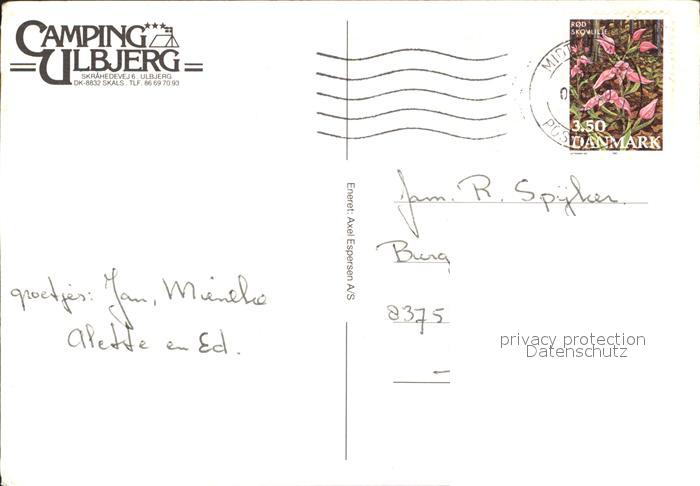 CAMPING
ULBJERG
SKRÅHEDEVEJ 6 . ULBJERG
DK-8832 SKALS . TLF. 86 69 70 93
RØD
SKOVLILJE
3.50
DANMARK
MIDT
POST
Eneret: Axel Espersen A/S
Fam. R. Spijker.
Burg
8375
groetjes: Jan, Mieneke
Alette en Ed.
privacy protection
Datenschutz